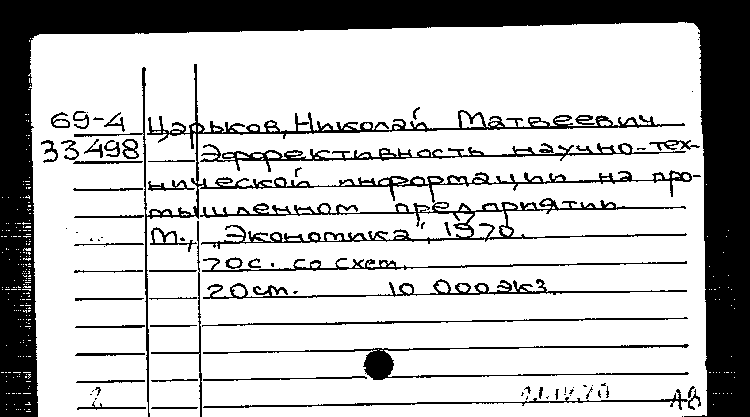 69-4 Царьков, Николай Матвеевич
33498 Эффективность научно-тех-
нической информации на про-
мышленном предприятии.
М., „Экономика", 1970.
70с. со схем.
20см. 10 000экз.
2 АВ